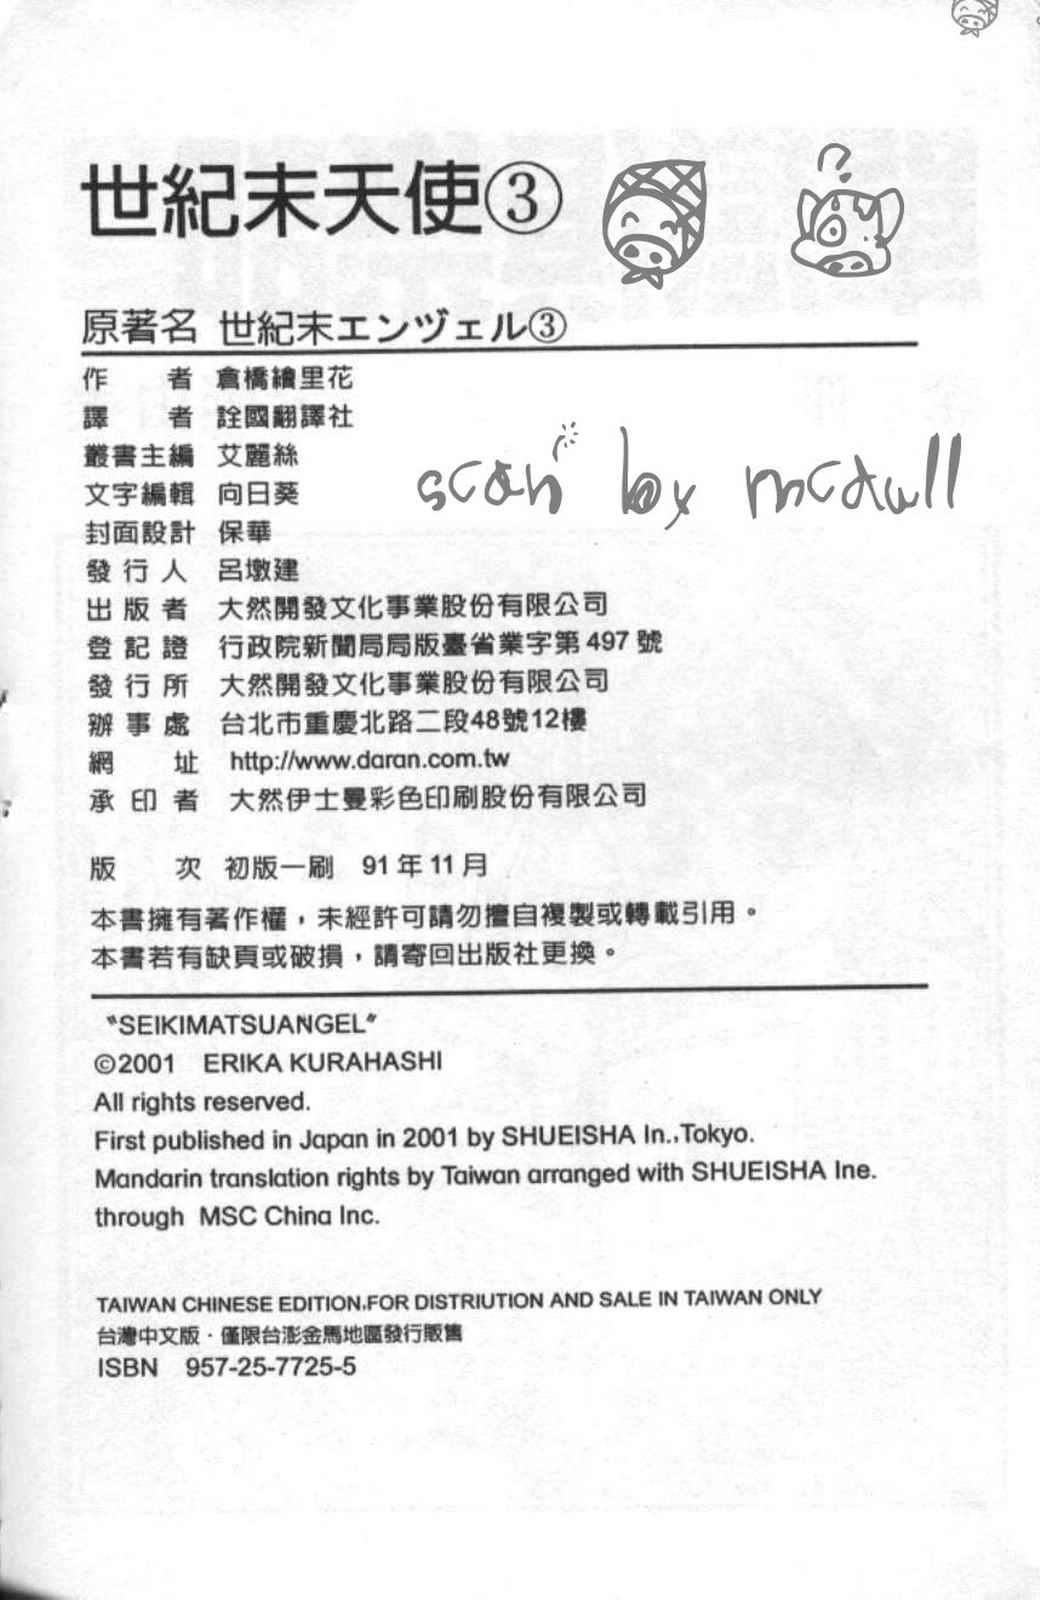 世紀末天使③
原著名 世紀末エンヅェル③
作 者 倉橋繪里花
譯 者 詮國翻譯社
叢書主編 艾麗絲
文字編輯 向日葵
封面設計 保華
發行人 呂墩建
出版者 大然開發文化事業股份有限公司
登記證 行政院新聞局局版臺省業字第497號
發行所 大然開發文化事業股份有限公司
辦事處 台北市重慶北路二段48號12樓
網 址 http://www.daran.com.tw
承印者 大然伊士曼彩色印刷股份有限公司
版 次 初版一刷 91年11月
本書擁有著作權，未經許可請勿擅自複製或轉載引用。
本書若有缺頁或破損，請寄回出版社更換。
〝SEIKIMATSUANGEL〞
©2001 ERIKA KURAHASHI
All rights reserved.
First published in Japan in 2001 by SHUEISHA In.,Tokyo.
Mandarin translation rights by Taiwan arranged with SHUEISHA Ine.
through MSC China Inc.
TAIWAN CHINESE EDITION.FOR DISTRIUTION AND SALE IN TAIWAN ONLY
台灣中文版．僅限台澎金馬地區發行販售
ISBN 957-25-7725-5
?
scan by mcdull